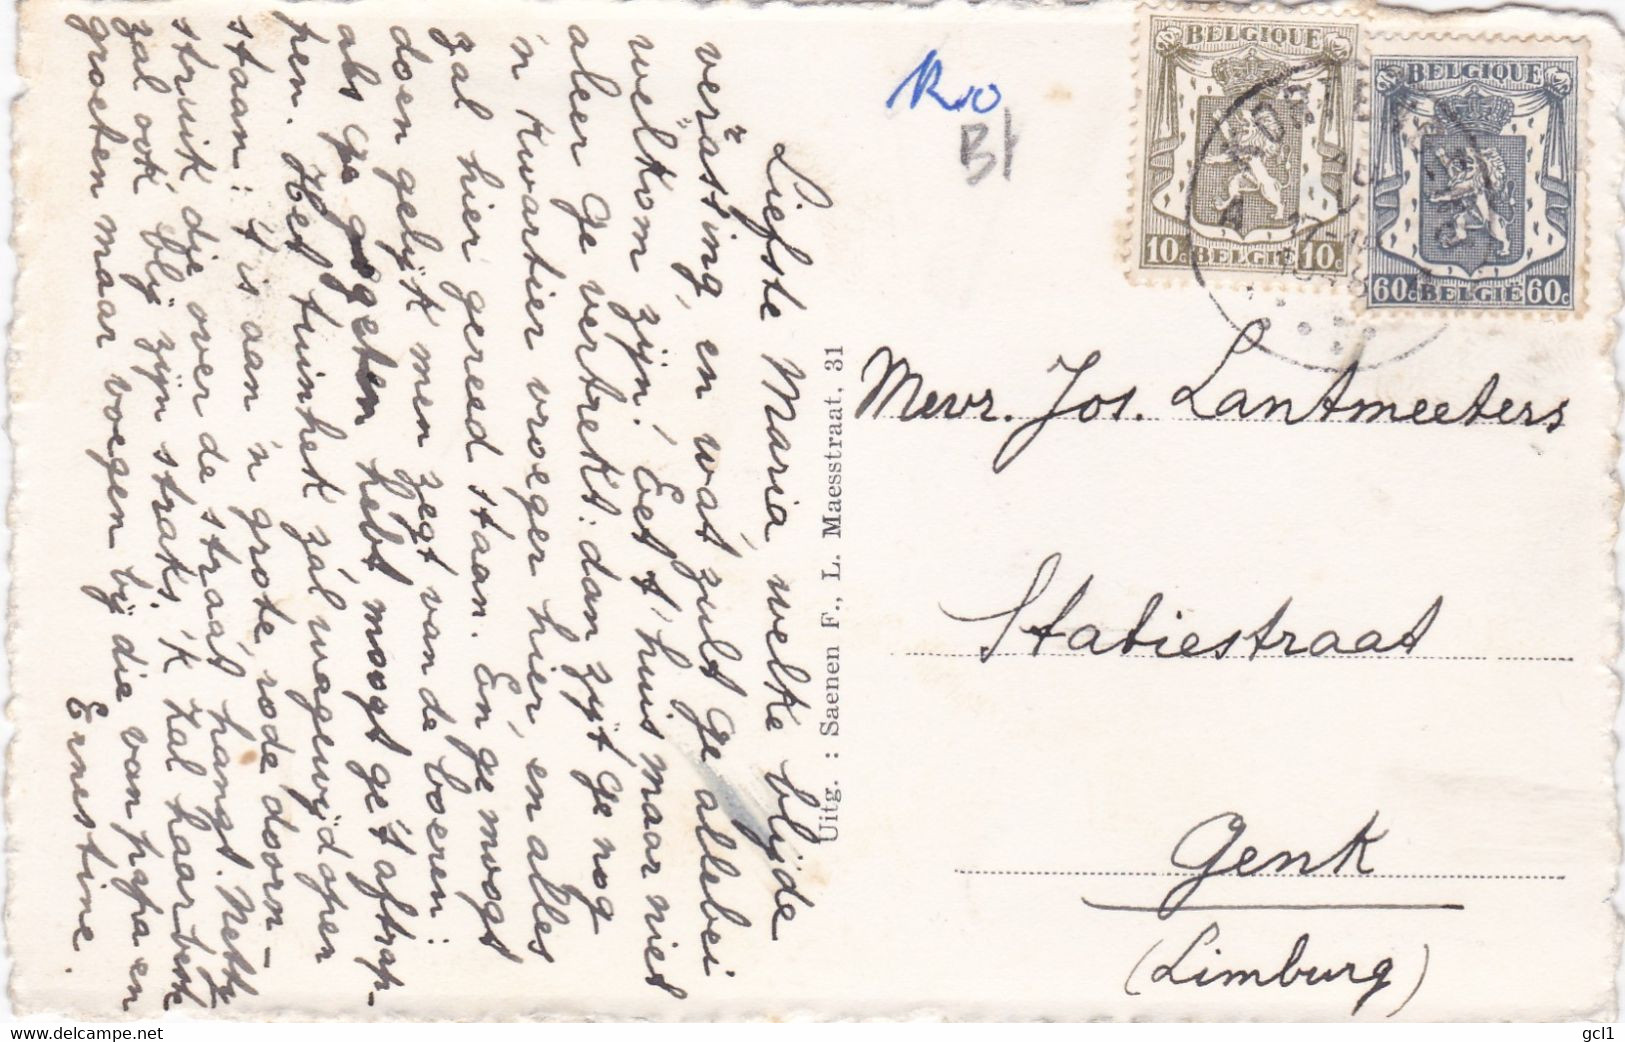 Liefste Maria welke blijde
verrassing, en wat zult Ge allebei
welkom zijn! Eet 't huis maar niet
aleer Ge vertrekt: dan zijt ge nog
'n kwartier vroeger hier, en alles
zal hier gereed staan. En ge moogt
doen gelijk men zegt van de boeren:
als ge gegeten hebt moogt ge 't aftrap-
pen. Het tuinhek zal wagewijd open
staan: 't is aan 'n grote rode doorn-
struik die over de straat hangt. Netty
zal ook blij zijn straks, 'k zal haar berk
groeten maar voegen bij die van papa en
Ernestine.
Uitg. : Saenen F., L. Maesstraat, 31
R10
B1
BELGIQUE
10c BELGIË 10c
BELGIQUE
60c BELGIË 60c
Mevr. Jos. Lantmeeters
Statiestraat
Genk
(Limburg)
www.delcampe.net
gcl1